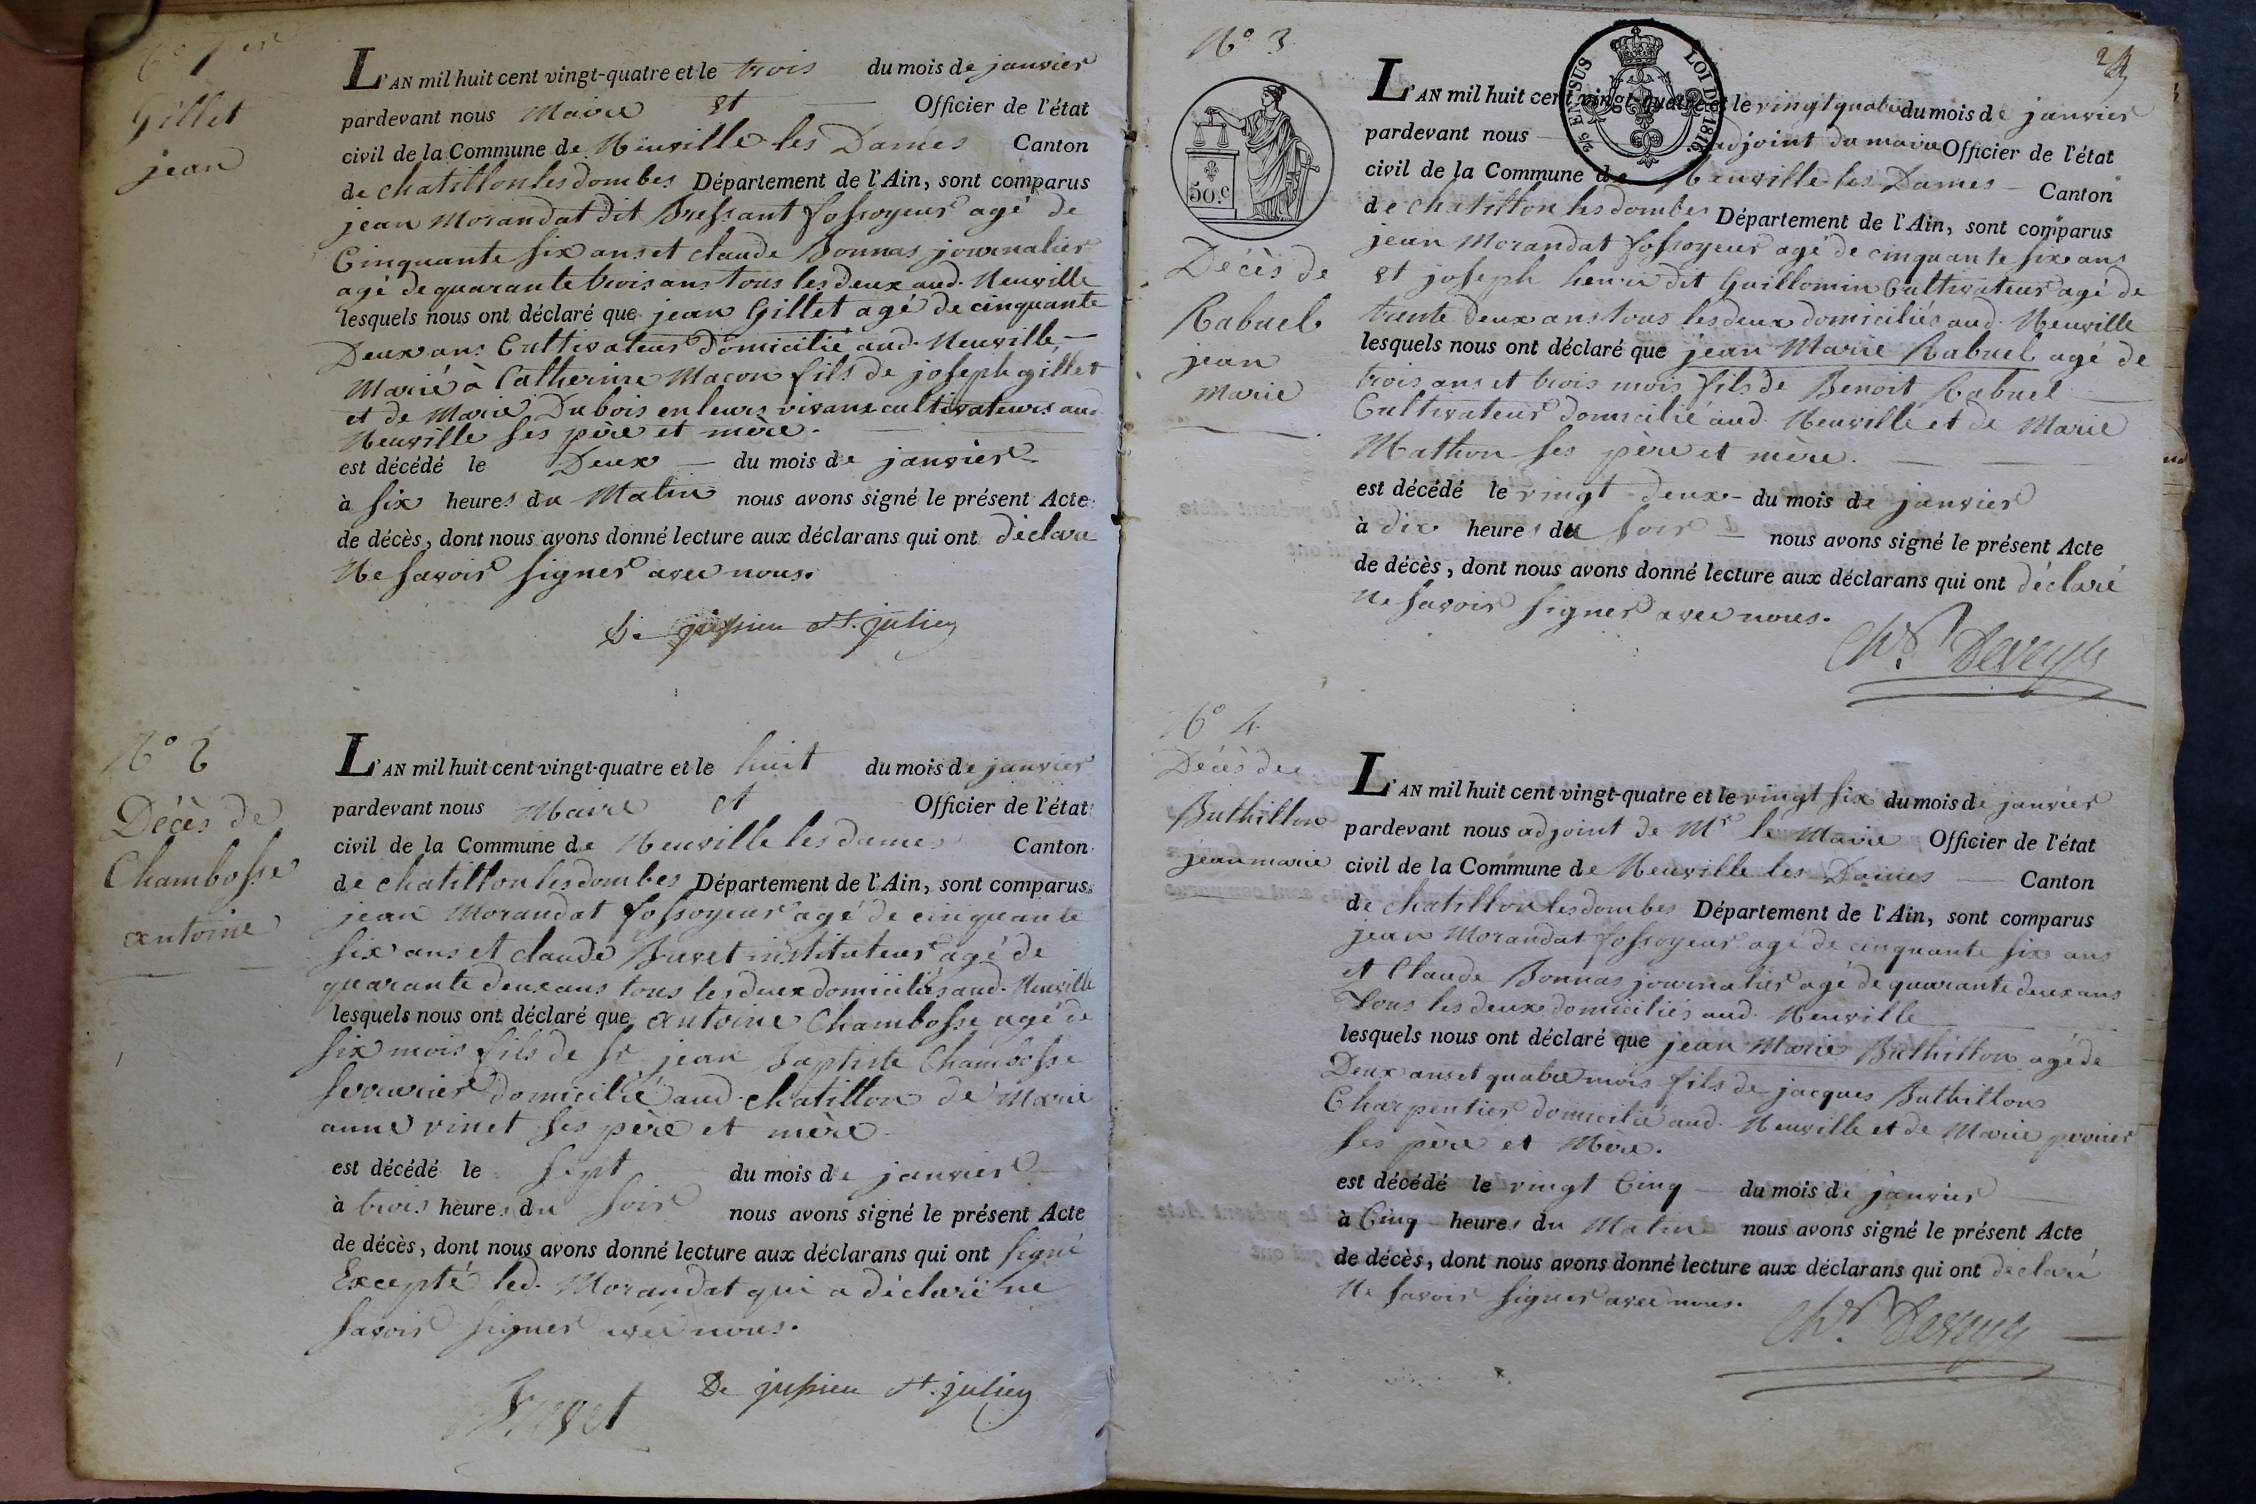 N° 1er
Gillet
jean
L'AN mil huit cent vingt-quatre et le trois du mois de janvier
pardevant nous Maire et Officier de l'état
civil de la Commune de Neuville les Dames Canton
de chatillon les dombes Département de l'Ain, sont comparus
jean Morandat dit Bressant fossoyeur agé de
Cinquante six ans et claude Bonnas journalier
agé de quarante trois ans tous les deux aud. Neuville
lesquels nous ont déclaré que jean Gillet agé de cinquante
Deux ans Cultivateur domicilié aud. Neuville
Marié à Catherine Macon fils de joseph gillet
et de Marie Dubois en leurs vivans cultivateurs aud.
Neuville ses père et mère.
est décédé le Deux du mois de janvier
à six heures du Matin nous avons signé le présent Acte
de décès, dont nous avons donné lecture aux déclarans qui ont déclaré
Ne savoir signer avec nous.
De jussieu St. julien
N° 2
Décès de
Chambosse
antoine
L'AN mil huit cent vingt-quatre et le huit du mois de janvier
pardevant nous Maire et Officier de l'état
civil de la Commune de Neuville les dames Canton
de chatillon les dombes Département de l'Ain, sont comparus
jean Morandat fossoyeur agé de cinquante
six ans et claude Buret instituteur agé de
quarante deux ans tous les deux domiciliés aud. Neuville
lesquels nous ont déclaré que antoine Chambosse agé de
six mois fils de Sr jean Baptiste Chambosse
serrurier domicilié aud. chatillon de Marie
anne vinet ses père et mère
est décédé le sept du mois de janvier
à trois heures du soir nous avons signé le présent Acte
de décès, dont nous avons donné lecture aux déclarans qui ont signé
Excepté led. Morandat qui a déclaré ne
savoir signer avec nous.
De jussieu St. julien
N° 3
50.c
Décès de
Rabuel
jean
marie
25 EN SUS LOI DE 1816
L'AN mil huit cent vingt-quatre et le vingt quatre du mois de janvier
pardevant nous adjoint du maire Officier de l'état
civil de la Commune de Neuville les Dames Canton
de chatillon les dombes Département de l'Ain, sont comparus
jean Morandat fossoyeur agé de cinquante six ans
et joseph henri dit Guillomin Cultivateur agé de
trente deux ans tous les deux domiciliés aud. Neuville
lesquels nous ont déclaré que jean Marie Rabuel agé de
trois ans et trois mois fils de Benoit Rabuel
Cultivateur domicilié aud. Neuville et de Marie
Mathon ses père et mère.
est décédé le vingt deux du mois de janvier
à dix heures du soir nous avons signé le présent Acte
de décès, dont nous avons donné lecture aux déclarans qui ont déclaré
Ne savoir signer avec nous.
N° 4
Décès de
Buthillon
jean marie
L'AN mil huit cent vingt-quatre et le vingt six du mois de janvier
pardevant nous adjoint de Mr le Maire Officier de l'état
civil de la Commune de Neuville les Dames Canton
de chatillon les dombes Département de l'Ain, sont comparus
jean Morandat fossoyeur agé de cinquante six ans
et Claude Bonnas journalier agé de quarante deux ans
Tous les deux domiciliés aud. Neuville
lesquels nous ont déclaré que jean Marie Buthillon agé de
Deux ans et quatre mois fils de jacques Buthillon
Charpentier domicilié aud. Neuville et de Marie
ses père et Mère.
est décédé le vingt Cinq du mois de janvier
à Cinq heures du Matin nous avons signé le présent Acte
de décès, dont nous avons donné lecture aux déclarans qui ont déclaré
Ne savoir signer avec nous.